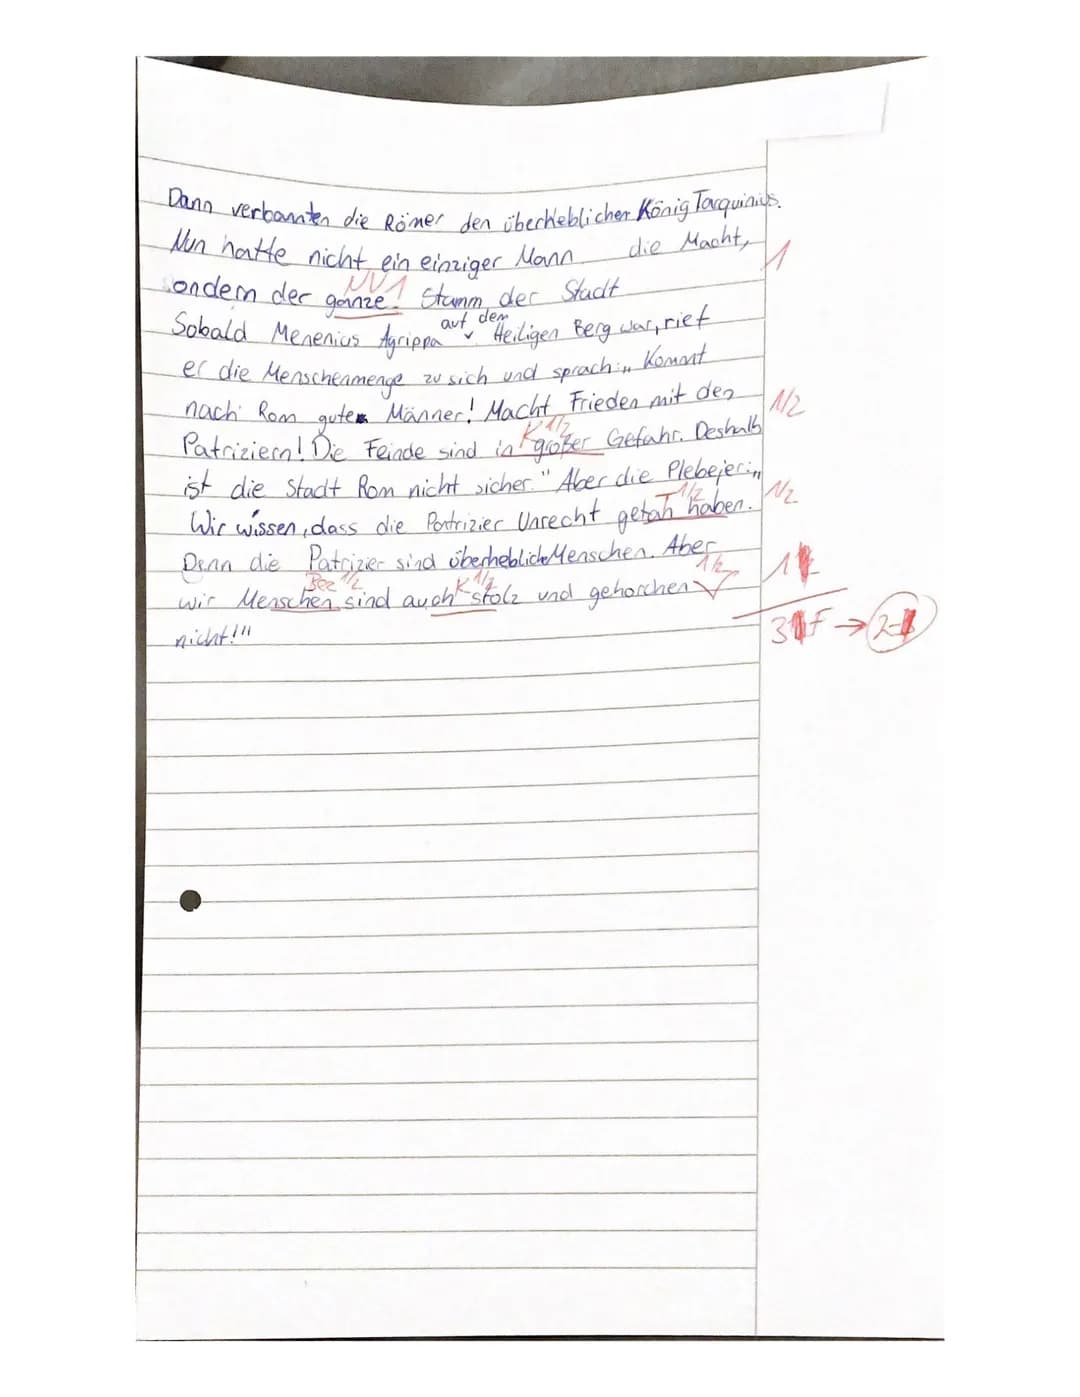 Dann verbannten die Römer den überheblichen König Tarquinius.
Nun hatte nicht ein einziger Mann die Macht, 1
sondern der ganze Stamm der Stadt
NV1
Sobald Menenius Agrippa auf dem Heiligen Berg war, rief
er die Menschenmenge zu sich und sprach: „Kommt
nach Rom gute Männer! Macht Frieden mit den 1/2
K 1/2
Patriziern! Die Feinde sind in großer Gefahr. Deshalb
ist die Stadt Rom nicht sicher." Aber die Plebejer: „
T 1/2
Wir wissen, dass die Partrizier Unrecht getan haben. 1/2
Denn die Patrizier sind überhebliche Menschen. Aber
Bez 1/2 K 1/2 1/2
wir Menschen sind auch stolz und gehorchen √ 1
nicht!"
3 F → 2-